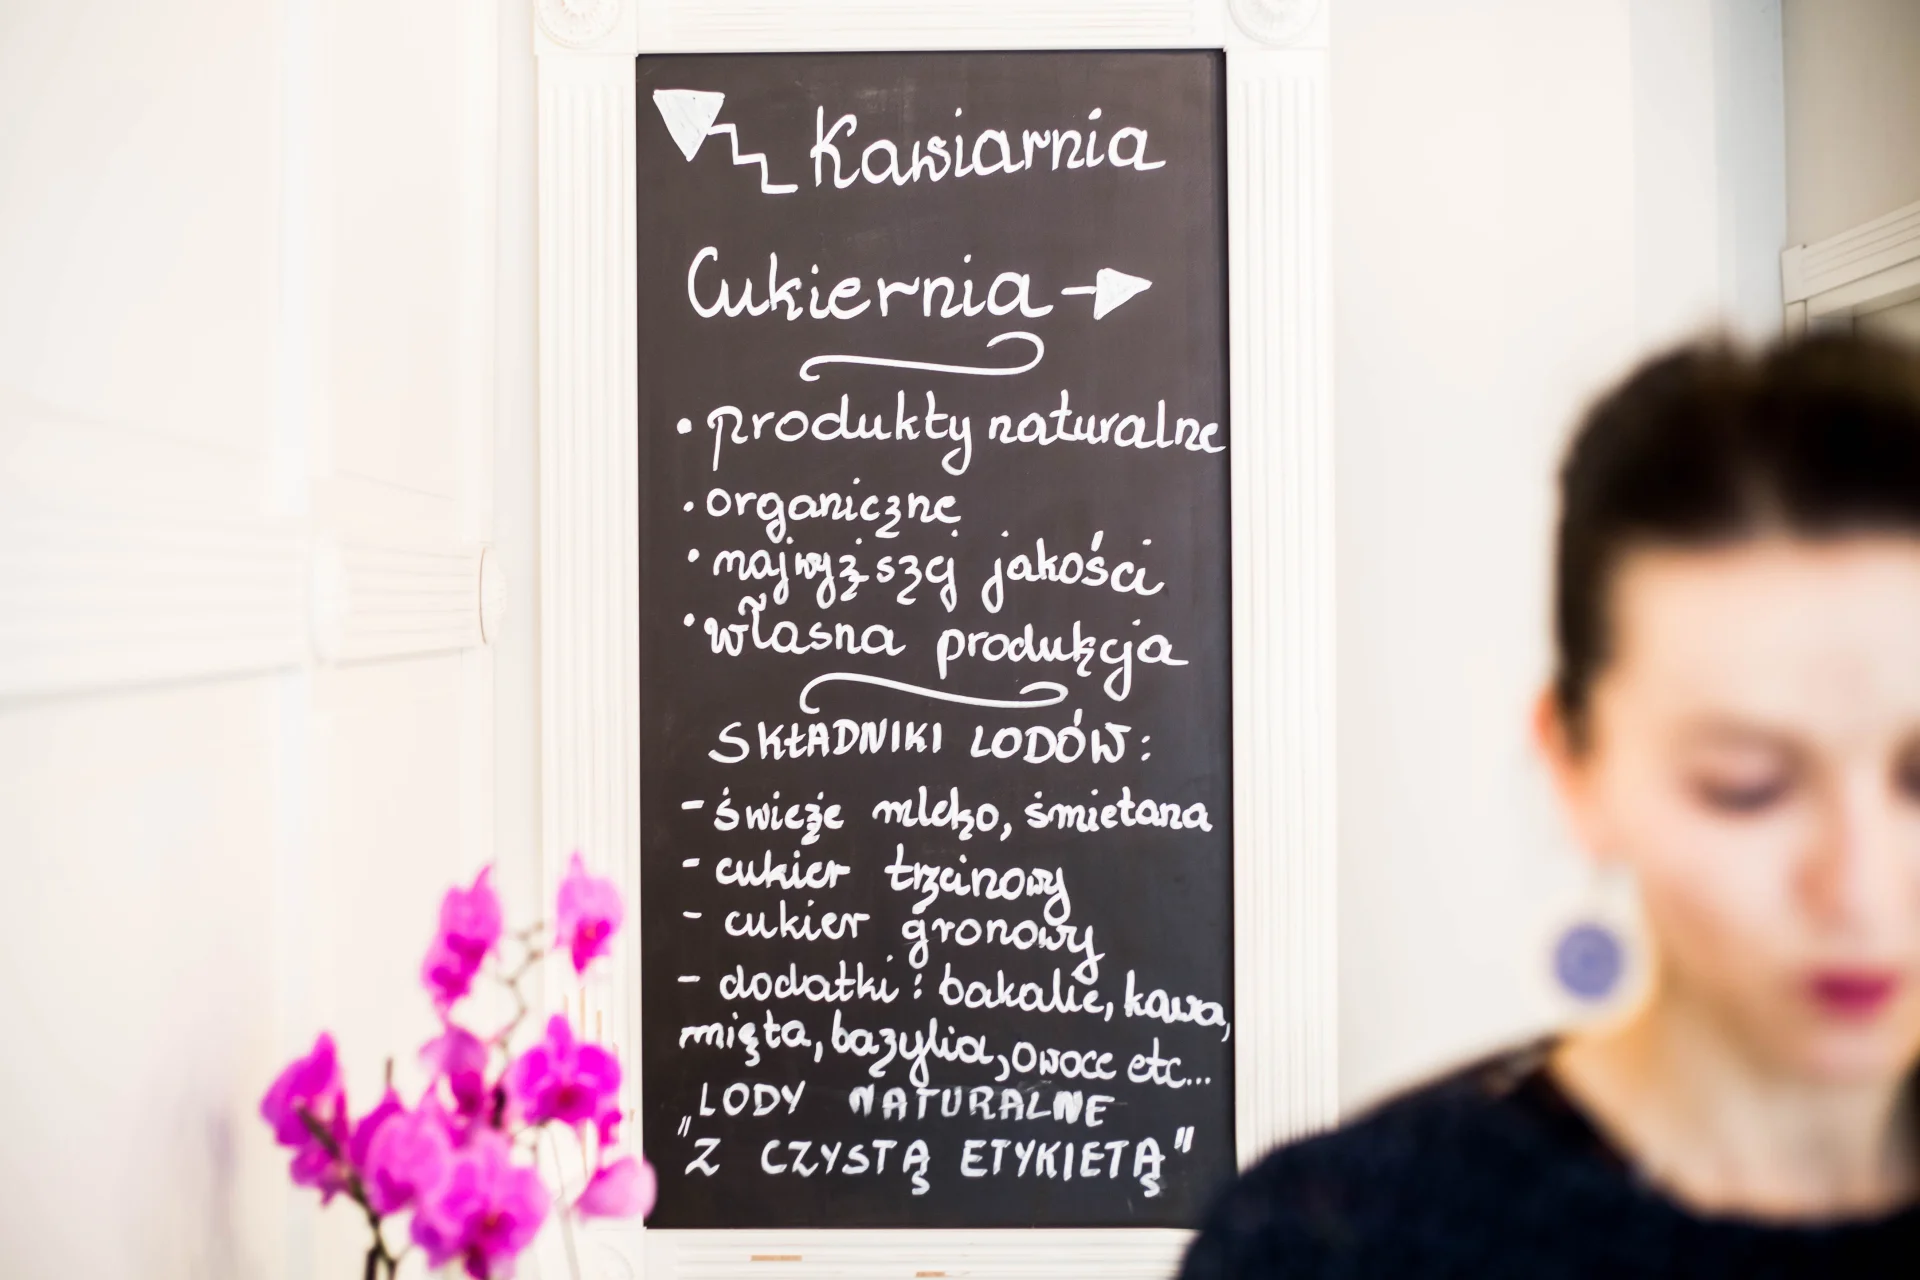 Kawiarnia
Cukiernia
• produkty naturalne
• organiczne
• najwyższej jakości
• własna produkcja
SKŁADNIKI LODÓW:
- świeże mleko, śmietana
- cukier trzcinowy
- cukier gronowy
- dodatki: bakalie, kawa,
mięta, bazylia, owoce etc...
LODY NATURALNE
„Z CZYSTĄ ETYKIETĄ"